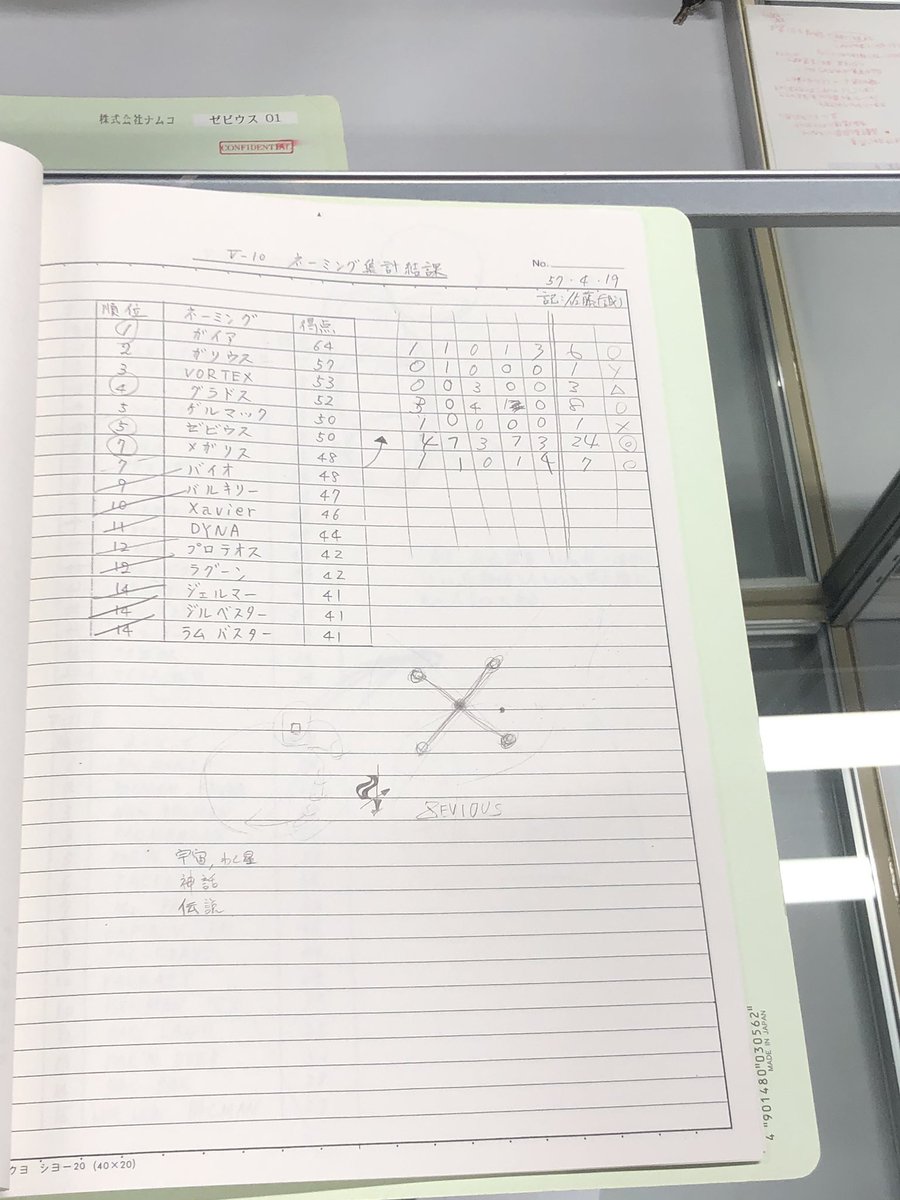 株式会社ナムコ ゼビウス 01
CONFIDENTIAL
V-10 ネーミング集計結課
No.
57・4・19
記:佐藤(誠)
順位 ネーミング 得点
1 ガイア 64 1 1 0 1 3 6 ○
2 ガリウス 57 0 1 0 0 0 1 ×
3 VORTEX 53 0 0 3 0 0 3 △
4 グラドス 52 0 4 0 8 ○
5 ゲルマック 50 1 0 0 0 0 1 ×
5 ゼビウス 50 4 7 3 7 3 24 ◎
7 メガリス 48 1 1 0 1 4 7 ○
7 バイオ 48
9 バルキリー 47
10 Xavier 46
11 DYNA 44
12 プロテオス 42
12 ラグーン 42
14 ジェルマー 41
14 ジルベスター 41
14 ラムバスター 41
SEVIOUS
宇宙, わく星
神話
伝説
クヨ シヨー20 (40×20)
4 901480 030562
MADE IN JAPAN